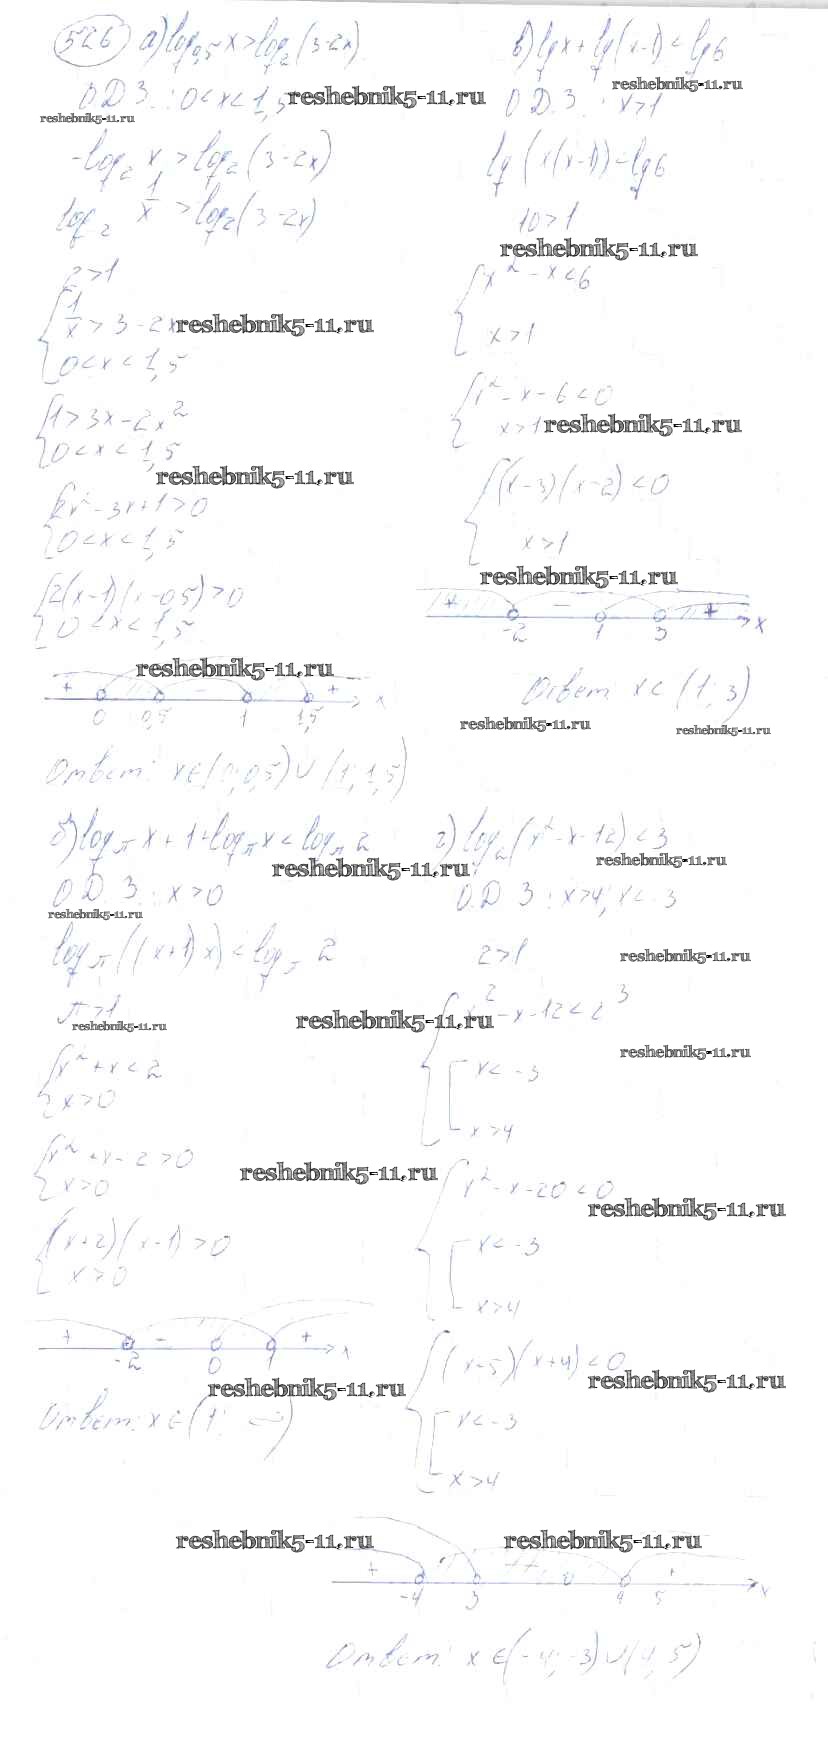 526 а) log₀,₅ x > log₂ (3-2x)
reshebnik5-11.ru
О.Д.З.: 0 < x < 1,5
reshebnik5-11.ru
-log₂ x > log₂ (3-2x)
log₂ 1/x > log₂ (3-2x)
2>1
1/x > 3-2x
reshebnik5-11.ru
0 < x < 1,5
1 > 3x-2x²
0 < x < 1,5
reshebnik5-11.ru
2x²-3x+1>0
0 < x < 1,5
2(x-1)(x-0,5)>0
0 < x < 1,5
reshebnik5-11.ru
+ - + x
0 0,5 1 1,5
Ответ: x∈(0; 0,5)∪(1; 1,5)
в) lg x + lg (x-1) < lg 6
reshebnik5-11.ru
О.Д.З.: x>1
lg (x(x-1)) < lg 6
10>1
reshebnik5-11.ru
x²-x<6
x>1
x²-x-6<0
x>1
reshebnik5-11.ru
(x-3)(x-2)<0
x>1
reshebnik5-11.ru
+ - + x
-2 1 3
Ответ: x∈(1; 3)
reshebnik5-11.ru
reshebnik5-11.ru
б) log_π x+1+log_π x < log_π 2
reshebnik5-11.ru
О.Д.З.: x>0
reshebnik5-11.ru
log_π ((x+1)x) < log_π 2
π>1
reshebnik5-11.ru
reshebnik5-11.ru
x²+x<2
x>0
x²+x-2>0
x>0
reshebnik5-11.ru
(x+2)(x-1)>0
x>0
+ - + x
-2 0 1
reshebnik5-11.ru
Ответ: x∈(1; ∞)
г) log₂ (x²-x-12)<3
reshebnik5-11.ru
О.Д.З.: x>4; x<-3
2>1
reshebnik5-11.ru
x²-x-12<2³
x<-3
reshebnik5-11.ru
x>4
x²-x-20<0
reshebnik5-11.ru
x<-3
x>4
(x-5)(x+4)<0
reshebnik5-11.ru
x<-3
x>4
reshebnik5-11.ru
reshebnik5-11.ru
+ + x
-4 3 4 5
Ответ: x∈(-4; -3)∪(4; 5)